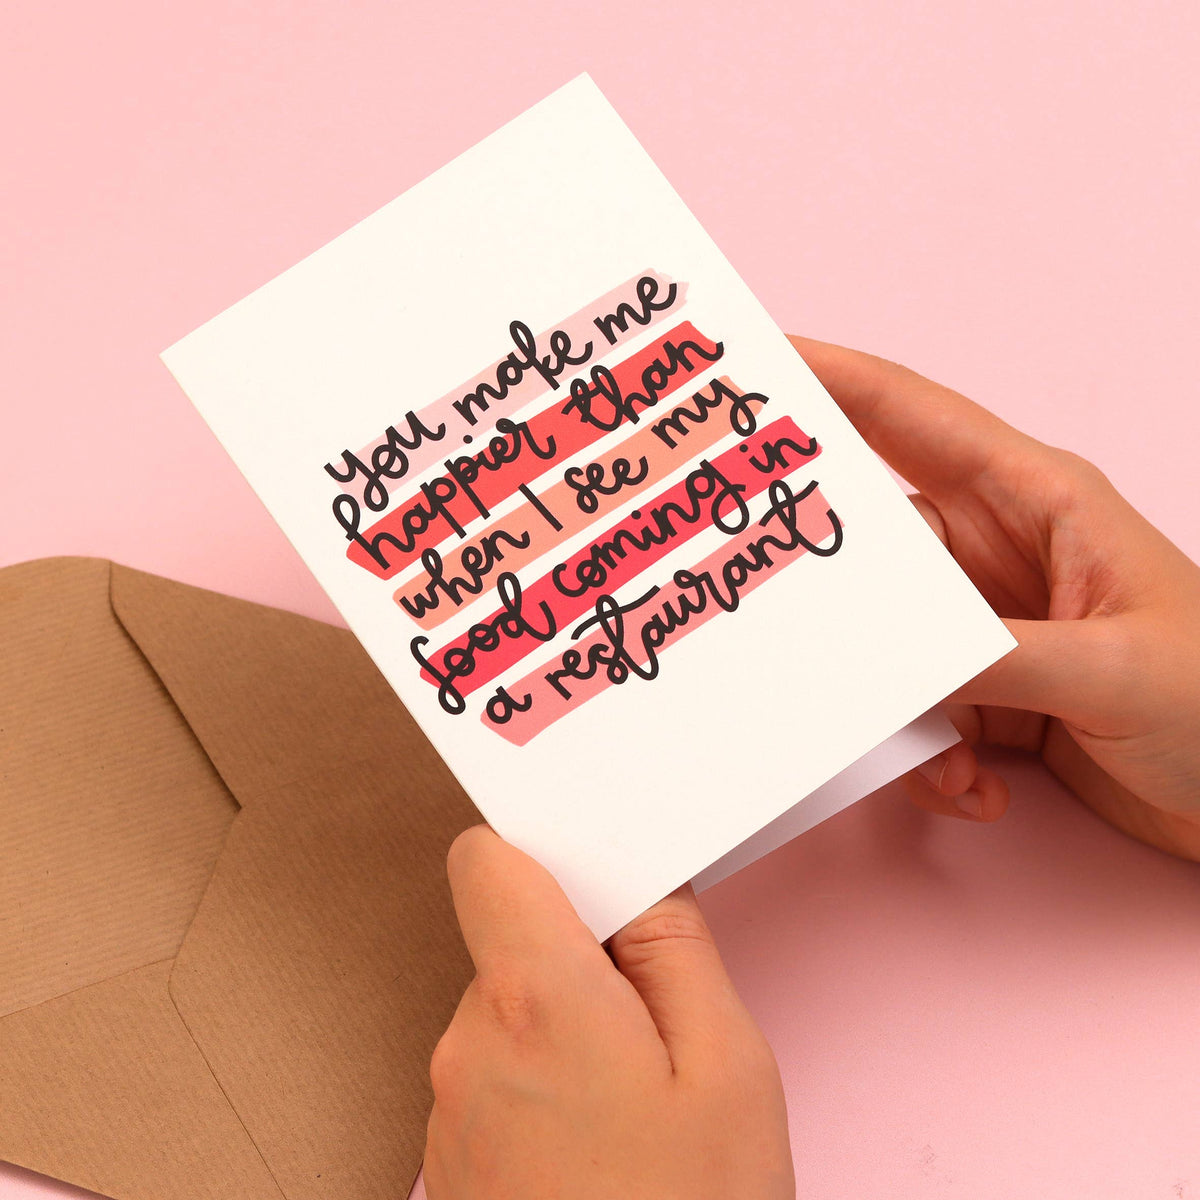 you make me
happier than
when I see my
food coming in
a restaurant